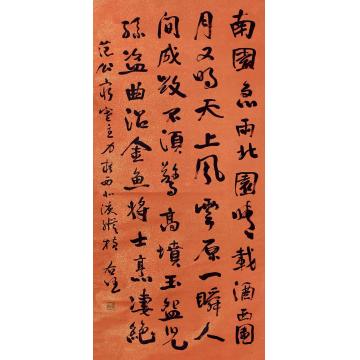 南園急雨北園晴載酒西園
月又明天上風雲原一瞬人
間成敗不須驚高墳玉盌兒
孫盜曲沼金魚將士烹淒絕
范公主力西北淚縱橫右任